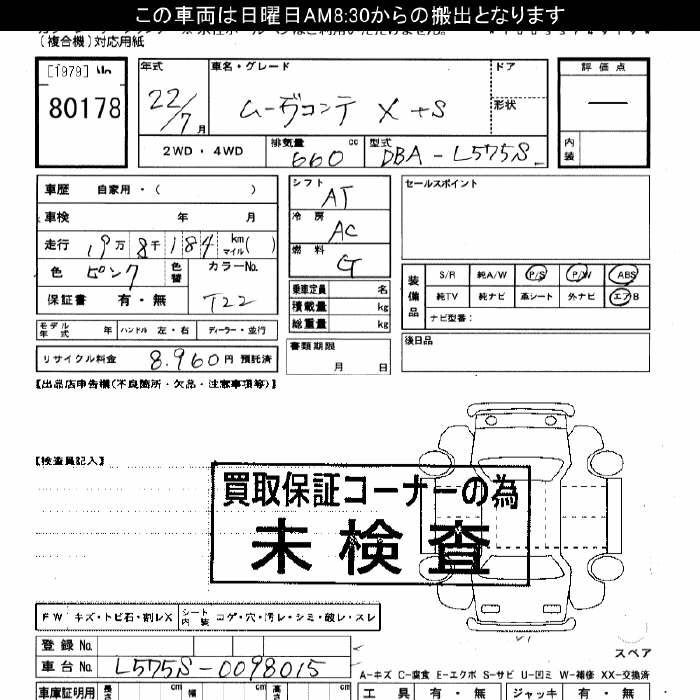 この車両は日曜日AM8:30からの搬出となります
(複合機)対応用紙
[1979]
80178
年式 車名・グレード ドア 評価点
22/7月 ムーヴコンテ X+S 形状 ―
2WD・4WD 排気量 660 cc 型式 DBA-L575S 内装
車歴 自家用・( )
車検 年 月
走行 19万8千184 km マイル( )
色 ピンク 色替 カラーNo. T22
保証書 有・無
シフト AT
冷房 AC
燃料 G
乗車定員 名
積載量 kg
総重量 kg
セールスポイント
装備品 S/R 純A/W P/S P/W ABS
純TV 純ナビ 革シート 外ナビ エアB
ナビ型番:
モデル年式 年 ハンドル 左・右 ディーラー・並行
書類期限 月 日
後日品
リサイクル料金 8,960円 預託済
【出品店申告欄(不良箇所・欠品・注意事項等)】
【検査員記入】
買取保証コーナーの為
未検査
FW キズ・トビ石・割レX シート内装 コゲ・穴・汚レ・シミ・破レ・スレ
登録No.
車台No. L575S-0098015
スペア
A-キズ C-腐食 E-エクボ S-サビ U-凹ミ W-補修 XX-交換済
車庫証明用 長さ cm 幅 cm 高さ cm 工具 有・無 ジャッキ 有・無